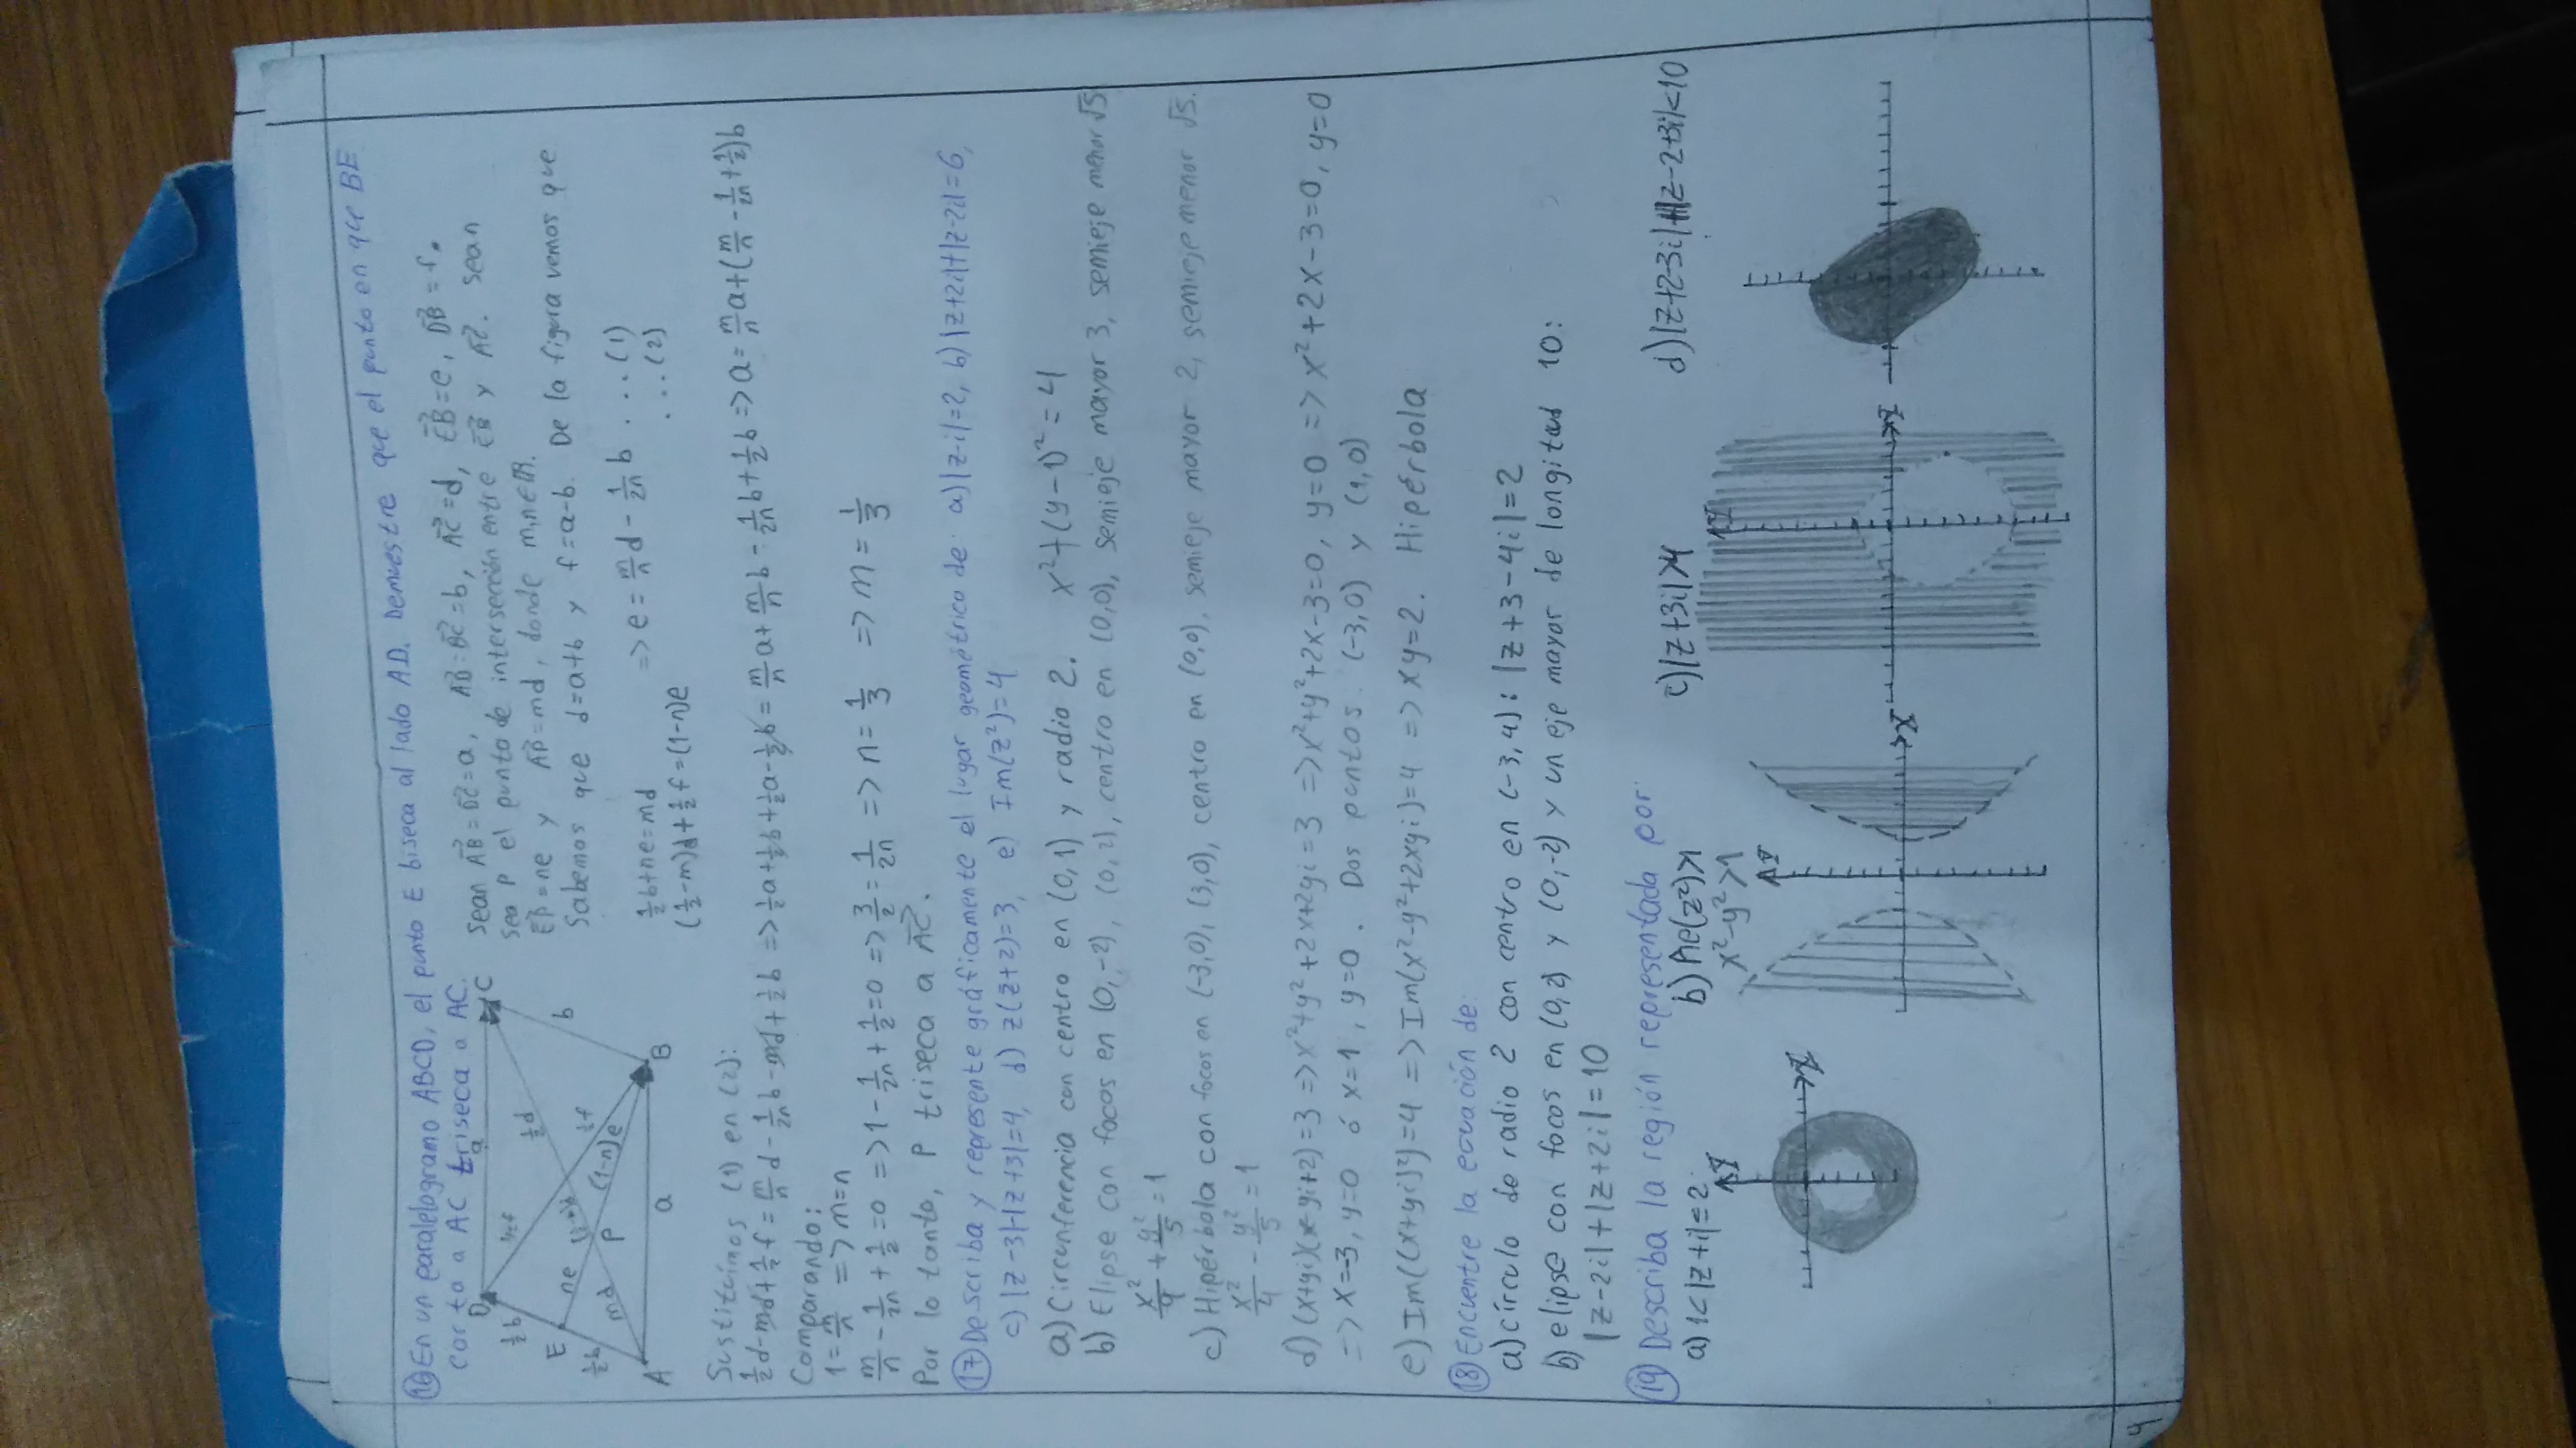 16 En un paralelogramo ABCD, el punto E biseca al lado AD. Demuestre que el punto en que BE
corta a AC triseca a AC.
Sean AB⃗ = DC⃗ = a, AD⃗ = BC⃗ = b, AC⃗ = d, EB⃗ = e, DB⃗ = f.
Sea P el punto de intersección entre EB⃗ y AC⃗. Sean
EP⃗ = ne y AP⃗ = md, donde m,n∈ℝ.
Sabemos que d=a+b y f=a-b. De la figura vemos que
D a C
½b ½f ½d
E ne (½-m)d ½f b
½b md P (1-n)e
A a B
½b+ne=md => e = m/n d - 1/2n b ...(1)
(½-m)d+½f=(1-n)e ...(2)
Sustituimos (1) en (2):
½d-md+½f = m/n d - 1/2n b - md + ½b => ½a+½b+½a-½b = m/n a + m/n b - 1/2n b + ½b => a = m/n a + (m/n - 1/2n + ½)b
Comparando:
1 = m/n => m=n
m/n - 1/2n + 1/2 = 0 => 1 - 1/2n + 1/2 = 0 => 3/2 = 1/2n => n = 1/3 => m = 1/3
Por lo tanto, P triseca a AC⃗.
17 Describa y represente gráficamente el lugar geométrico de: a) |z-i|=2, b) |z+2i|+|z-2i|=6,
c) |z-3|-|z+3|=4, d) z(z̄+2)=3, e) Im(z²)=4
a) Circunferencia con centro en (0,1) y radio 2. x²+(y-1)²=4
b) Elipse con focos en (0,-2), (0,2), centro en (0,0), semieje mayor 3, semieje menor √5
x²/9 + y²/5 = 1
c) Hipérbola con focos en (-3,0), (3,0), centro en (0,0), semieje mayor 2, semieje menor √5.
x²/4 - y²/5 = 1
d) (x+yi)(x-yi+2)=3 => x²+y²+2x+2yi=3 => x²+y²+2x-3=0, y=0 => x²+2x-3=0, y=0
=> x=-3, y=0 ó x=1, y=0. Dos puntos. (-3,0) y (1,0)
e) Im((x+yi)²)=4 => Im(x²-y²+2xyi)=4 => xy=2. Hipérbola
18 Encuentre la ecuación de:
a) círculo de radio 2 con centro en (-3,4): |z+3-4i|=2
b) elipse con focos en (0,2) y (0,-2) y un eje mayor de longitud 10:
|z-2i|+|z+2i|=10
19 Describa la región representada por:
a) 1<|z+i|≤2 b) Re(z²)>1 c) |z+3i|>4 d) |z+2-3i|+|z-2+3i|<10
x²-y²>1
Y X
Y X
Y X
4